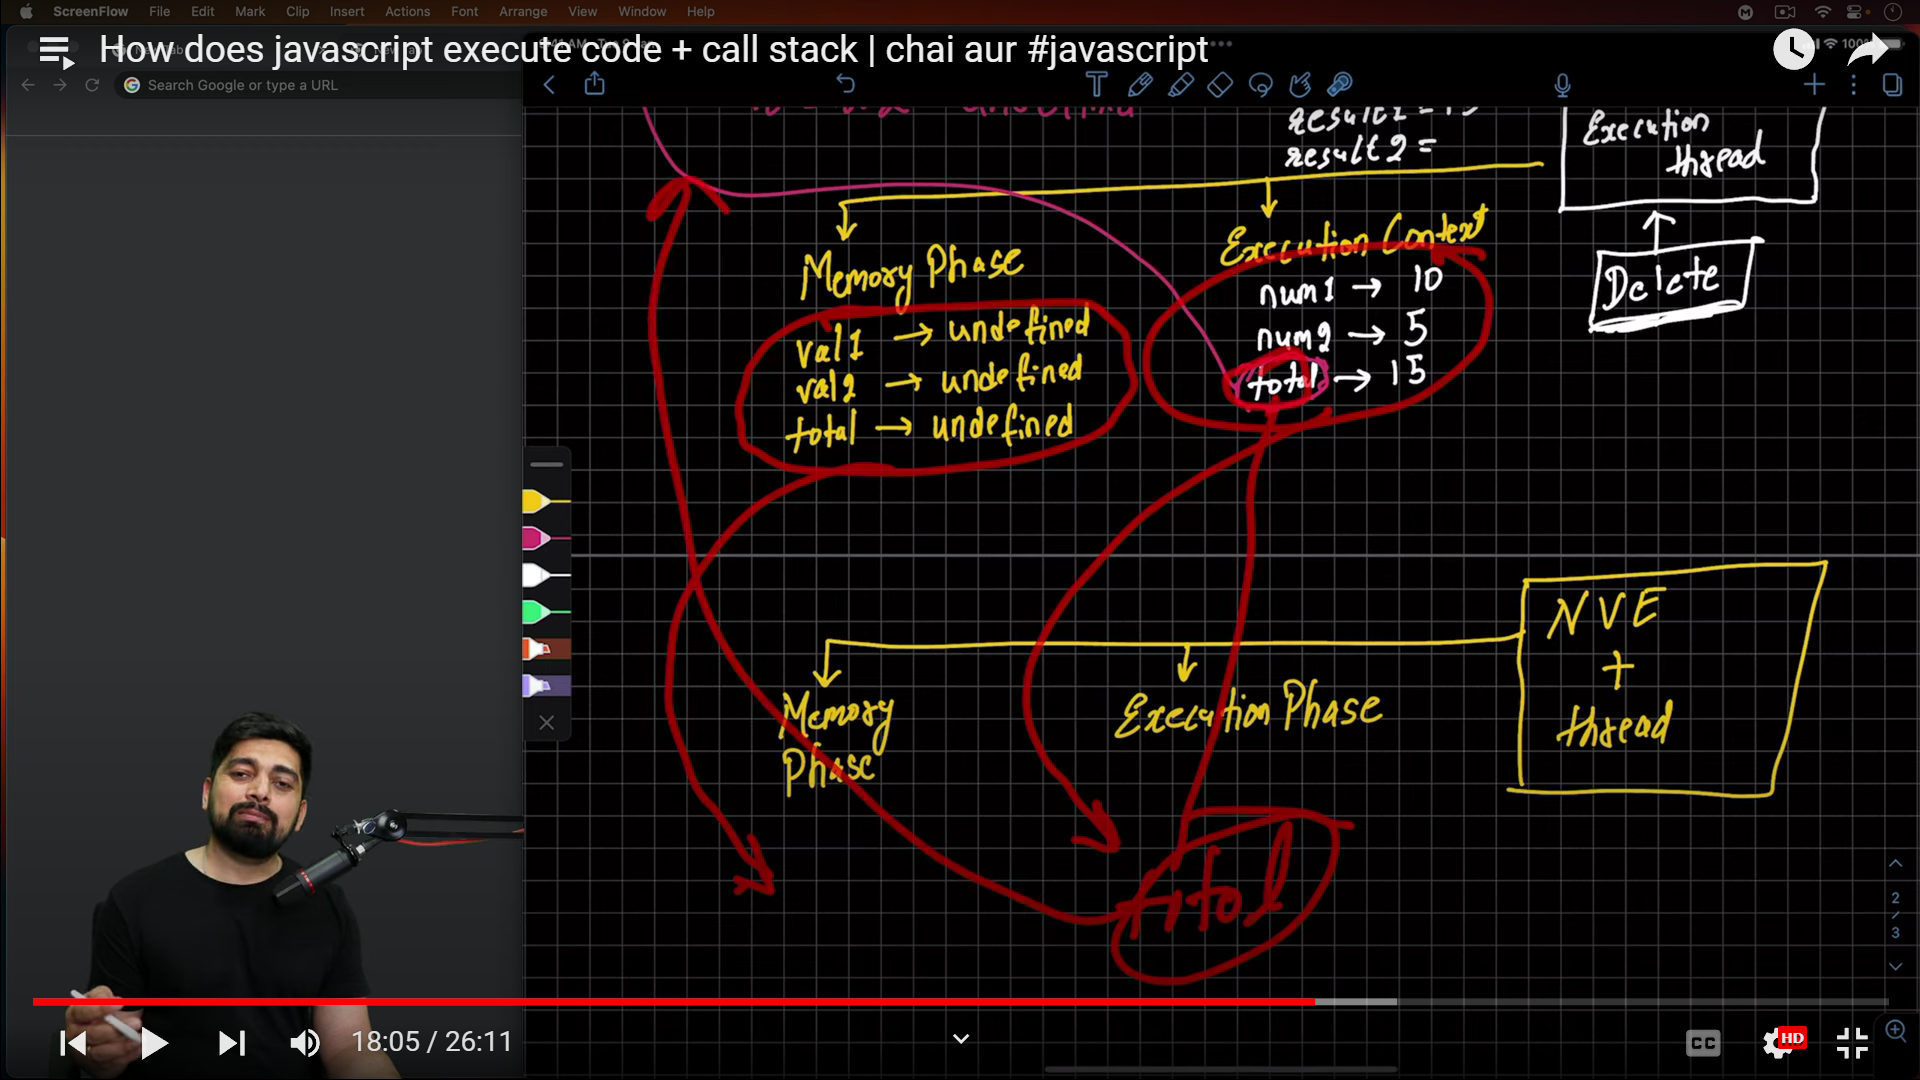 ScreenFlow File Edit Mark Clip Insert Actions Font Arrange View Window Help
How does javascript execute code + call stack | chai aur #javascript
100%
Search Google or type a URL
result2 =
Execution
thread
Delete
Memory Phase
val1 → undefined
val2 → undefined
total → undefined
Execution Context
num1 → 10
num2 → 5
total → 15
NVE
+
thread
Memory
Phase
Execution Phase
total
2
/
3
18:05 / 26:11
CC
HD